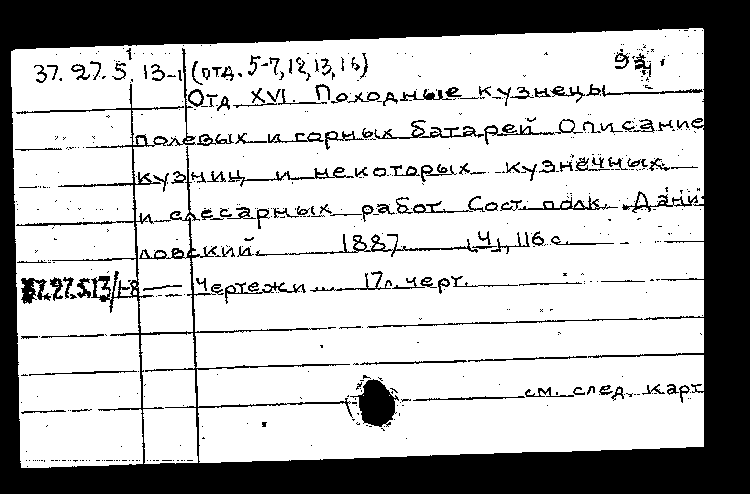 37.27.5.13-1 (отд. 5-7,12,13,16)
Отд. XVI. Походные кузнецы
полевых и горных батарей Описание
кузниц и некоторых кузнечных
и слесарных работ. Сост. полк. Дани-
ловский. 1887. [4], 116 с.
37.27.5.13/1-8 — Чертежи ... 17л. черт.
см. след. карт